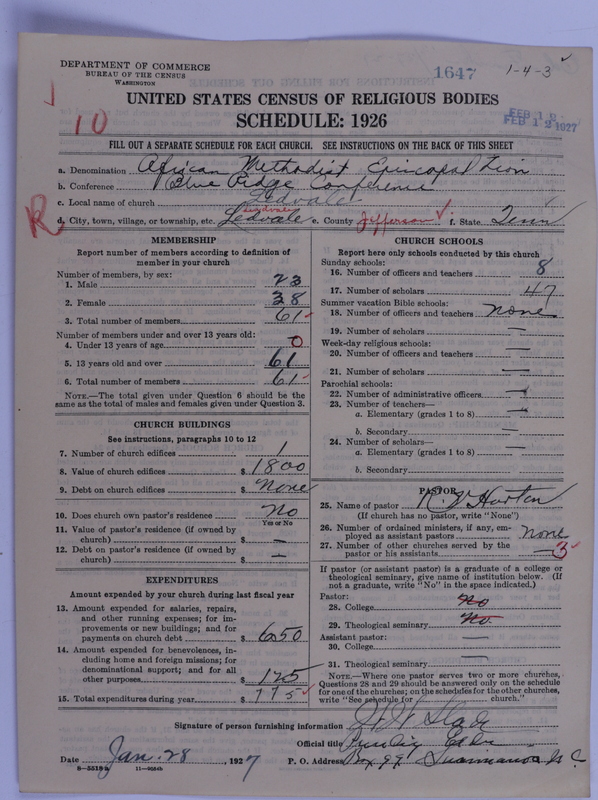 DEPARTMENT OF COMMERCE
BUREAU OF THE CENSUS
WASHINGTON
1647
1-4-3
10
UNITED STATES CENSUS OF RELIGIOUS BODIES
SCHEDULE: 1926
FEB 12 1927
FILL OUT A SEPARATE SCHEDULE FOR EACH CHURCH. SEE INSTRUCTIONS ON THE BACK OF THIS SHEET
a. Denomination African Methodist Episcopal Zion
b. Conference Blue Ridge Conference
c. Local name of church Ledvale
R
d. City, town, village, or township, etc. Ledvale e. County Jefferson f. State Tenn
MEMBERSHIP
Report number of members according to definition of member in your church
Number of members, by sex:
1. Male 23
2. Female 38
3. Total number of members 61
Number of members under and over 13 years old:
4. Under 13 years of age 0
5. 13 years old and over 61
6. Total number of members 61
NOTE.—The total given under Question 6 should be the same as the total of males and females given under Question 3.
CHURCH BUILDINGS
See instructions, paragraphs 10 to 12
7. Number of church edifices 1
8. Value of church edifices $ 1800
9. Debt on church edifices $ None
10. Does church own pastor's residence No
Yes or No
11. Value of pastor's residence (if owned by church) $ —
12. Debt on pastor's residence (if owned by church) $ —
EXPENDITURES
Amount expended by your church during last fiscal year
13. Amount expended for salaries, repairs, and other running expenses; for improvements or new buildings; and for payments on church debt $ 650
14. Amount expended for benevolences, including home and foreign missions; for denominational support; and for all other purposes $ 125
15. Total expenditures during year $ 775
CHURCH SCHOOLS
Report here only schools conducted by this church
Sunday schools:
16. Number of officers and teachers 8
17. Number of scholars 47
Summer vacation Bible schools:
18. Number of officers and teachers none
19. Number of scholars —
Week-day religious schools:
20. Number of officers and teachers —
21. Number of scholars —
Parochial schools:
22. Number of administrative officers —
23. Number of teachers—
a. Elementary (grades 1 to 8) —
b. Secondary —
24. Number of scholars—
a. Elementary (grades 1 to 8) —
b. Secondary
PASTOR
25. Name of pastor Horton
(If church has no pastor, write "None")
26. Number of ordained ministers, if any, employed as assistant pastors none
27. Number of other churches served by the pastor or his assistants 3
If pastor (or assistant pastor) is a graduate of a college or theological seminary, give name of institution below. (If not a graduate, write "No" in the space indicated.)
Pastor:
28. College No
29. Theological seminary No
Assistant pastor:
30. College —
31. Theological seminary —
NOTE.—Where one pastor serves two or more churches, Questions 28 and 29 should be answered only on the schedule for one of the churches; on the schedules for the other churches, write "See schedule for church."
Signature of person furnishing information
Official title Presiding Elder
Date Jan. 28, 1927
P. O. Address Box 99 N C
8—5518a 11—9064b